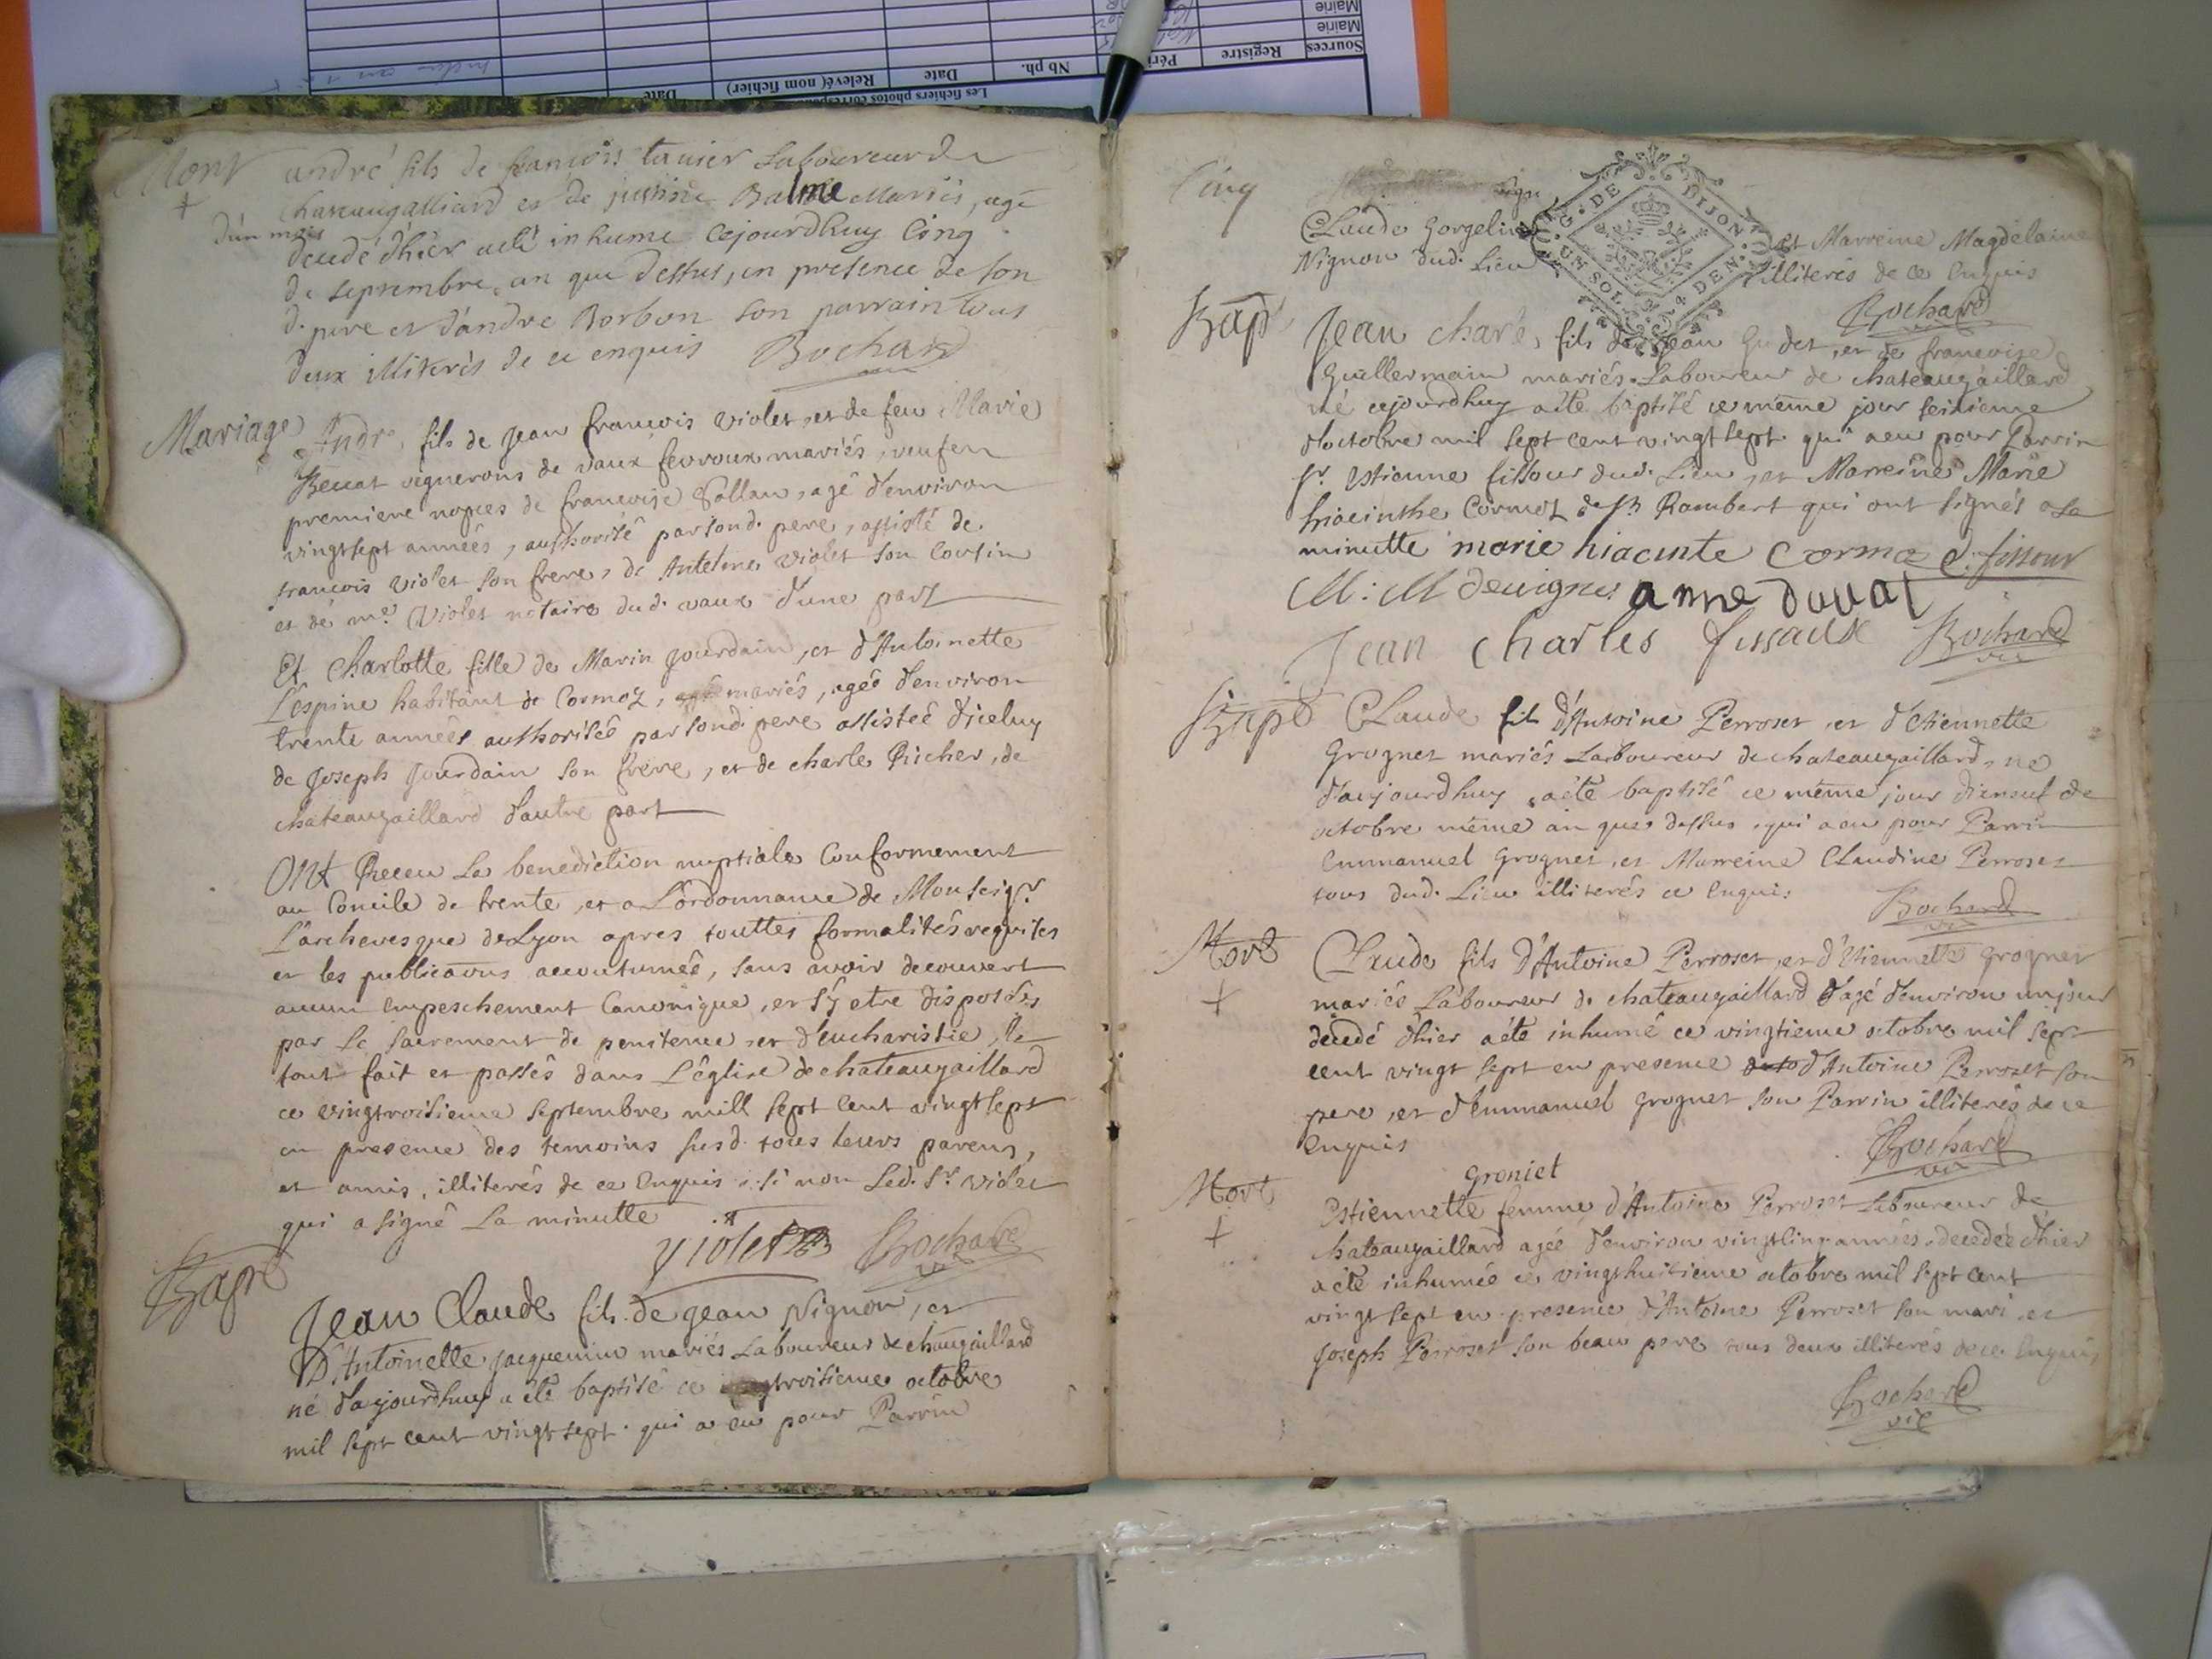 Sources
Registre
Péri
Nb ph.
Date
Relevé( nom fichier)
Date
Mairie
Mairie
Les fichiers photos
Mort
andré fils de françois tavier Laboureur de
Chateaugalliard et de justine Balme Mariés, agé
d'un mois
decedé d'hier a eté inhumé cejourdhuy Cinq
de septembre, an que dessus, en presence de son
d. pere et d'andre Borbon son parrain tous
deux illiterés de ce enquis Bochard
Mariage
André, fils de Jean francois Violet, et de feu Marie
Beccat vignerons de vaux fevroux mariés, veuf en
premiere nopces de francoise Pallan, agé d'environ
vingtsept années, authorité par sond. pere, assisté de
francois Violet son frere, de Antelme Violet son Cousin
et de me. Violet notaire dud. vaux d'une part
Et Charlotte fille de Marin jourdain, et d'Antoinette
L'espine habitant de Cormoz, mariés, agéé d'environ
trente années authorisée par sond. pere assistéé d'iceluy
de Joseph Jourdain son frere, et de charle Richer, de
chateaugaillard d'autre part
Ont Receu La benediction nuptiale Conformement
au Concile de trente, et a L'ordonnance de Monseigr.
L'archevesque de Lyon apres touttes formalités requites
et les publicaons accoutumée, sans avoir decouvert
aucun empeschement Canonique, et s'y etre disposées
par Le sacrement de penitence, et d'eucharistie, le
tout fait et passés dans L'église de chateaugaillard
ce vingtroisieme septembre mill sept cent vingt sept
en presence des temoins susd. tous leurs parens,
et amis, illiterés de ce enquis, si non Led. Sr. violet
qui a signé La minutte
violet Bochard
vic
Bapt
Jean Claude fils de Jean Nignon, et
D'Antoinette jacquemin mariés Laboureur de chaugaillard
né d'ajourdhuy a été baptisé ce troisieme octobre
mil sept cent vingt sept. qui a eu pour Parrin
Cinq
Claude Gorgelin et Marreine Magdelaine
Nignon dud. Lieu illiterés de ce enquis
G. DE DIJON
UN SOL 4 DEN.
Bochard
Bapt
Jean charé, fils de Jean Gudet, et de francoise
Guillermain mariés Laboureur de chateaugaillard
né cejourdhuy a été baptisé ce méme jour seizieme
d'octobre mil sept cent vingt sept. qui a eu pour Parrin
sr. Estienne fissour dud. Lieu, et Marreine Marie
hiacinthe Cormoz de st Rambert qui ont signés a La
minutte marie hiacinte Cormoz e. fissour
M: M devignes anne duval
Jean charles fissaux Bochard
vic
Bapt
Claude fils d'Antoine Perroset, et d'Etiennette
Grognet mariés Laboureur de chateaugaillard, né
d'aujourdhuy, a été baptisé ce méme jour dixneuf de
octobre méme an que dessus, qui a eu pour Parrin
Emmanuel Grognet, et Marreine Claudine Perroset
tous dud. Lieu illiterés ce enquis
Bochard
vic
Mort
Claude fils d'Antoine Perroset, et d'Etiennette Grognet
mariés Laboureur de chateaugaillard d'agé d'environ un jour
decedé d'hier a été inhumé ce vingtieme octobre mil sept
cent vingt sept en presence d'Antoine Perroset son
pere, et d'Emmanuel grognet son Parrin illiterés de ce
Enquis
Bochard
vic
Mort
Groniet
Estiennette femme d'Antoine Perroset Laboureur de
chateaugaillard agéé d'environ vingtcinq années, decedéé d'hier
a été inhuméé ce vingthuitieme octobre mil sept cent
vingt sept en presence d'Antoine Perroset son mari, et
Joseph Perroset son beau pere tous deux illiterés de ce enquis
Bochard
vic